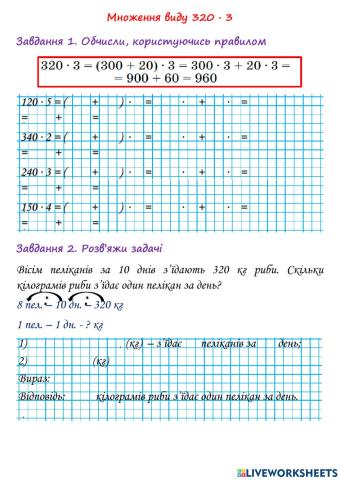 Множення виду 320 · 3
Завдання 1. Обчисли, користуючись правилом
320 · 3 = (300 + 20) · 3 = 300 · 3 + 20 · 3 =
= 900 + 60 = 960
120 · 5 = ( + ) · = · + · =
= + =
340 · 2 = ( + ) · = · + · =
= + =
240 · 3 = ( + ) · = · + · =
= + =
150 · 4 = ( + ) · = · + · =
= + =
Завдання 2. Розв'яжи задачі
Вісім пеліканів за 10 днів з'їдають 320 кг риби. Скільки
кілограмів риби з'їдає один пелікан за день?
8 пел. – 10 дн. – 320 кг
1 пел. – 1 дн. - ? кг
1) . (кг) – з'їдає пеліканів за день;
2) (кг)
Вираз:
Відповідь: кілограмів риби з'їдає один пелікан за день.
.
LIVEWORKSHEETS